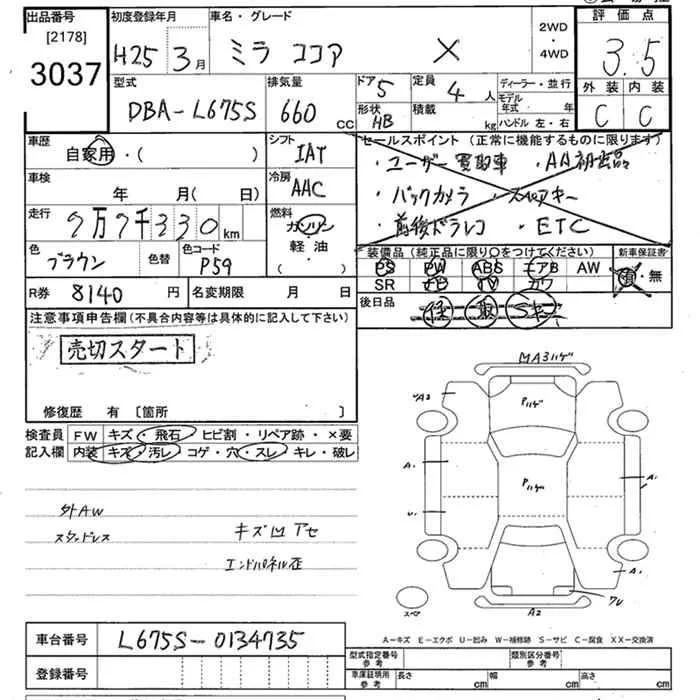 出品番号 初度登録年月 車名・グレード 2WD・4WD 評価点
[2178]
3037 H25 3月 ミラ ココア X 3.5
型式 排気量 ドア 5 定員 4人 ディーラー・並行 外装 内装
DBA-L675S 660 CC 形状 HB 積載 kg モデル年式 年 C C
ハンドル 左・右
車歴 シフト セールスポイント (正常に機能するものに限ります)
自家用・( ) IAT ・ユーザー買取車 ・AA初出品
車検 冷房 ・バックカメラ ・スペアキー
年 月(日) AAC ・前後ドラレコ ・ETC
走行 7万7千330km 燃料 ガソリン 軽油 ( )
色 ブラウン 色替 色コード P59
装備品(純正品に限り○をつけてください) 新車保証書
PS PW ABS エアB AW 有・無
SR ナビ TV カワ
R券 8140円 名変期限 月 日 後日品
注意事項申告欄(不具合内容等は具体的に記入して下さい)
売切スタート
修復歴 有 〔箇所 〕
検査員 FW キズ・飛石 ヒビ割・リペア跡・×要
記入欄 内装 キズ・汚レ コゲ・穴・スレ キレ・破レ
外AW
スタッドレス キズ凹アセ
エンドパネル歪
MA3ハゲ
Pハゲ
A1
Pハゲ
A1
A1
スペア
A2
車台番号 L675S-0134735
登録番号
A-キズ E-エクボ U-凹み W-補修跡 S-サビ C-腐食 XX-交換済
型式指定番号 参考 類別区分番号 参考
車庫証明用 参考 長さ cm 幅 cm 高さ cm